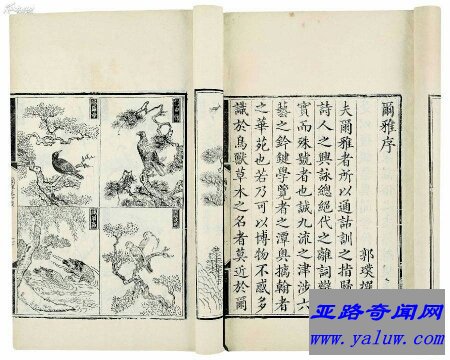 爾雅序
郭璞撰
夫爾雅者所以通詁訓之指歸
詩人之興詠總絕代之離詞
實而殊號者也誠九流之津涉六
藝之鈐鍵學覽者之潭奧摛翰者
之華苑也若乃可以博物不惑多
識於鳥獸草木之名者莫近於爾
亚路奇闻网
www.yaluw.com